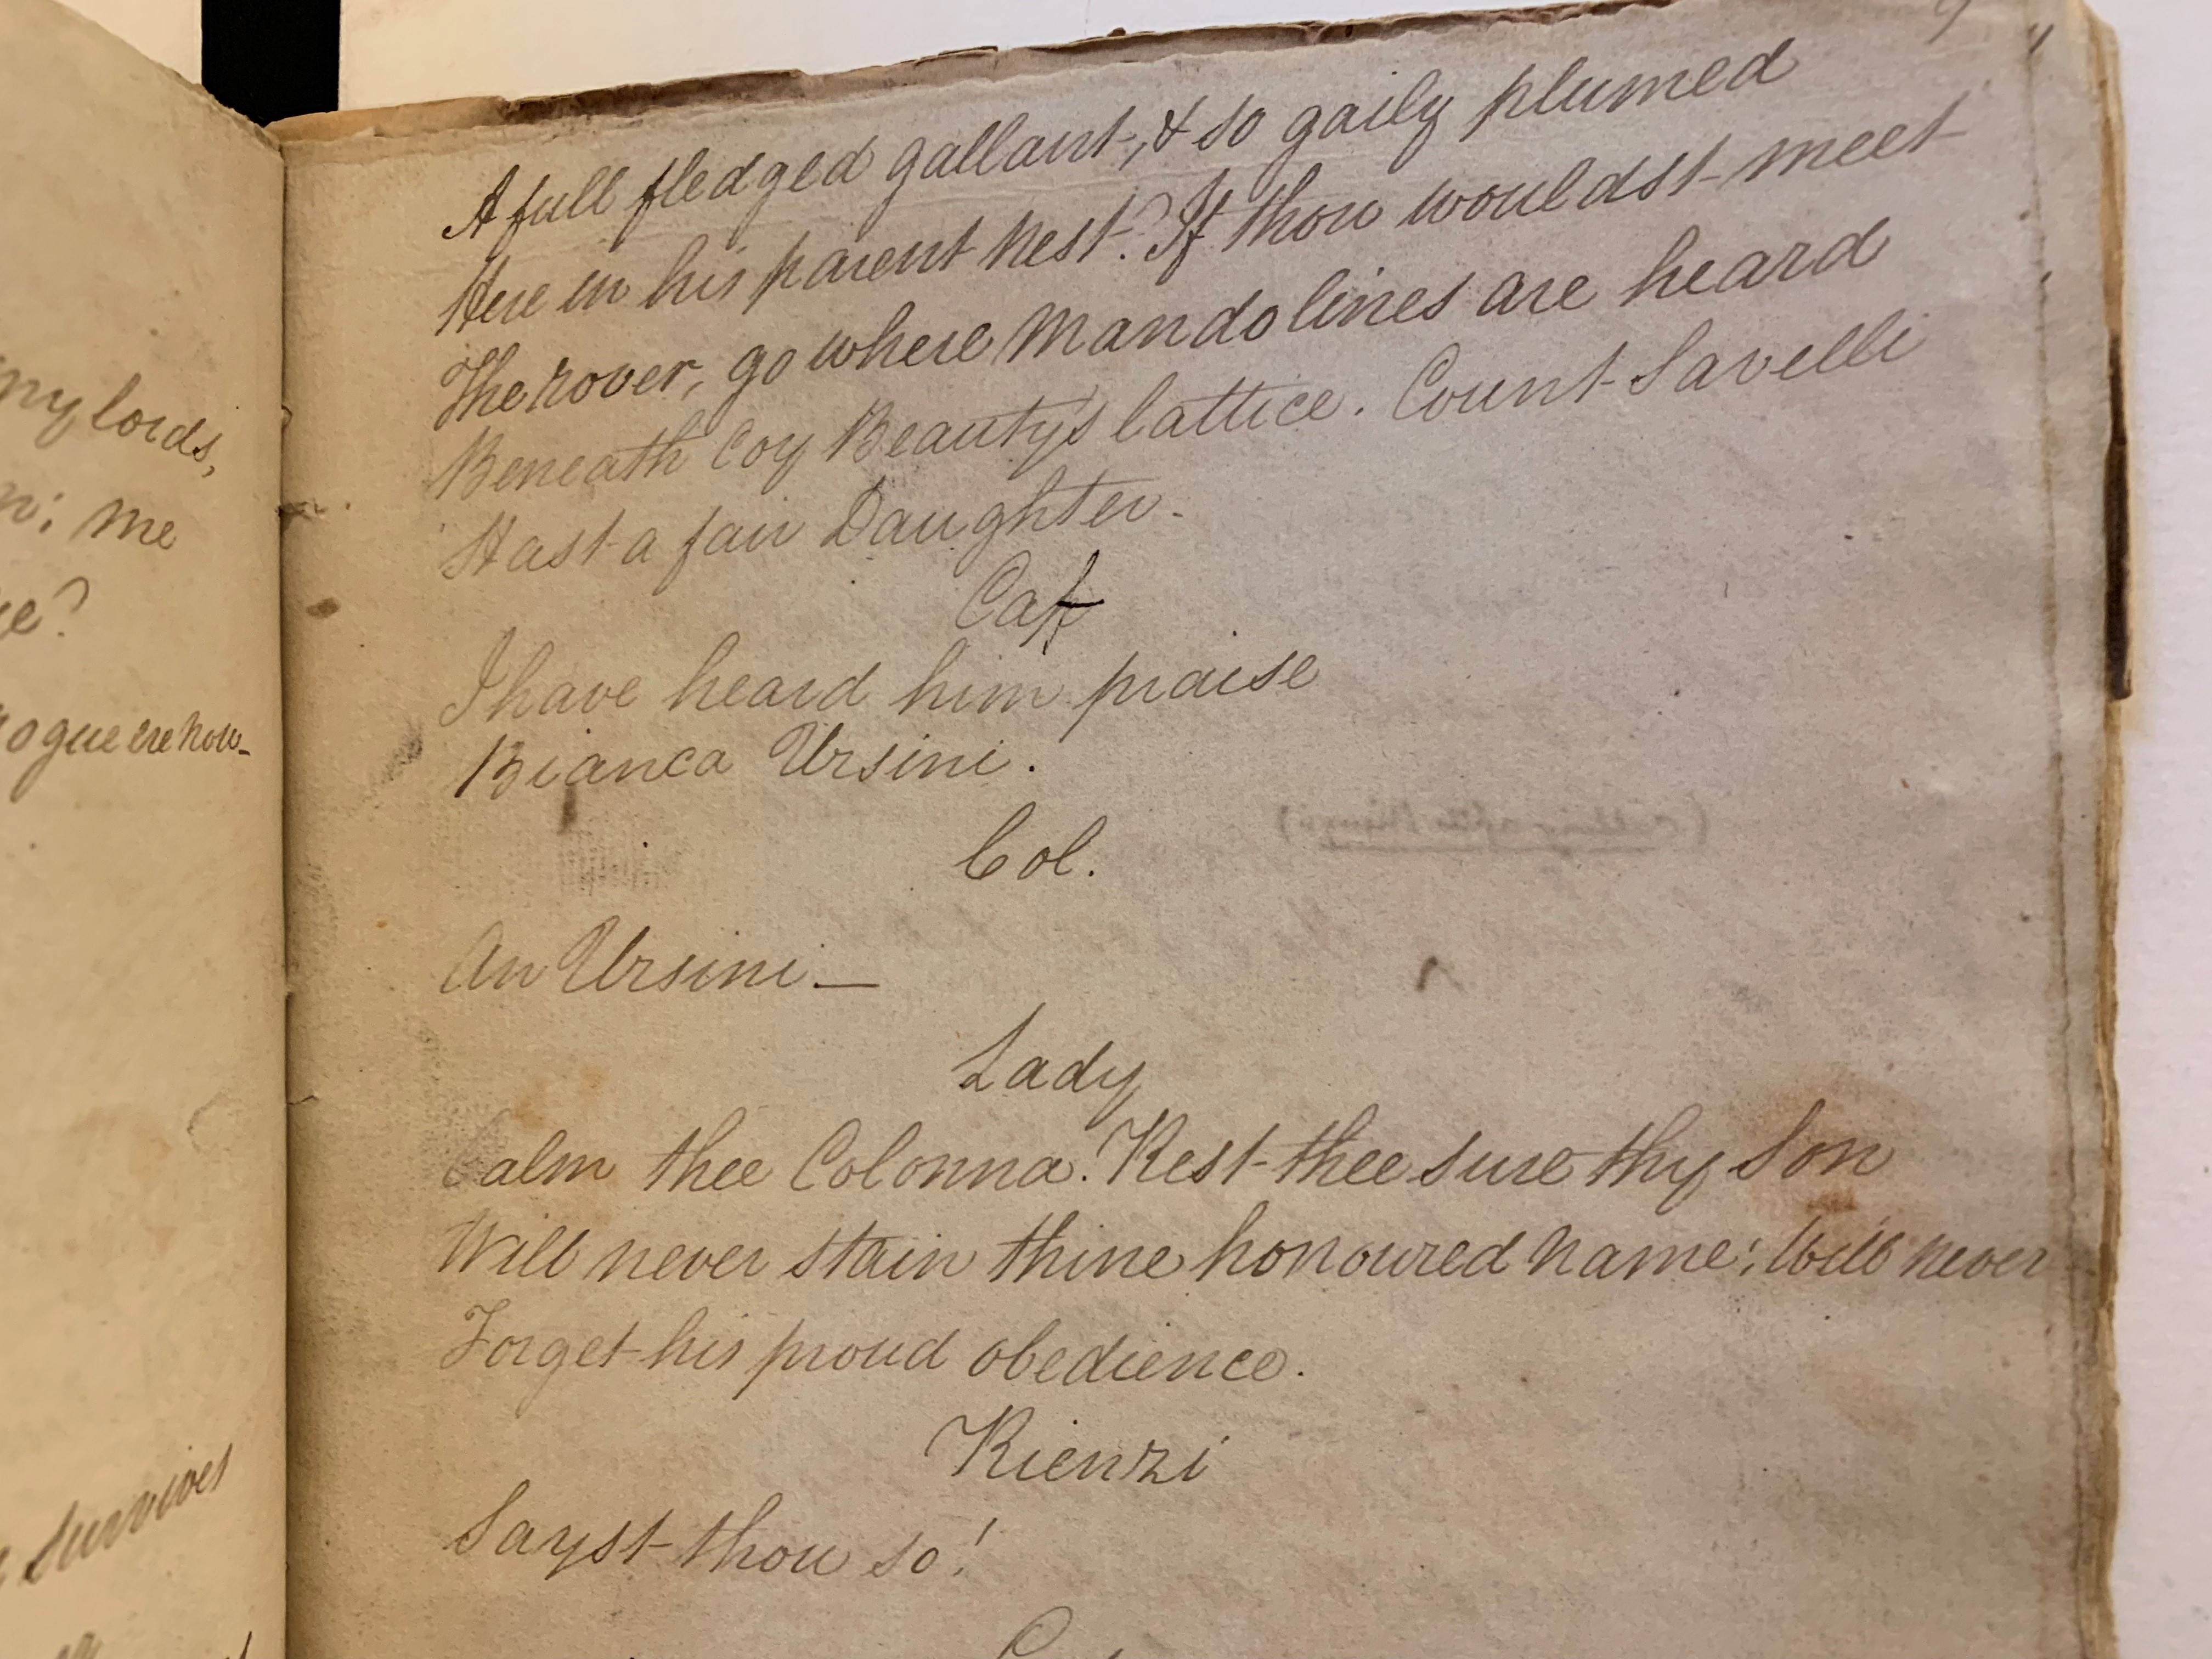 my lords,
me
ogue ere now_
survives
A full fledged gallant, & so gaily plumed
Here in his parent nest? If thou wouldst meet
The rover, go where Mandolines are heard
Beneath Coy Beauty's lattice. Count Savelli
Hast a fair Daughter.
Caf
I have heard him praise
Bianca Ursini.
Col.
An Ursini —
Lady
Calm thee Colonna. Rest thee sure thy Son
Will never stain thine honoured name; Will never
Forget his proud obedience.
Rienzi
Sayst thou so!